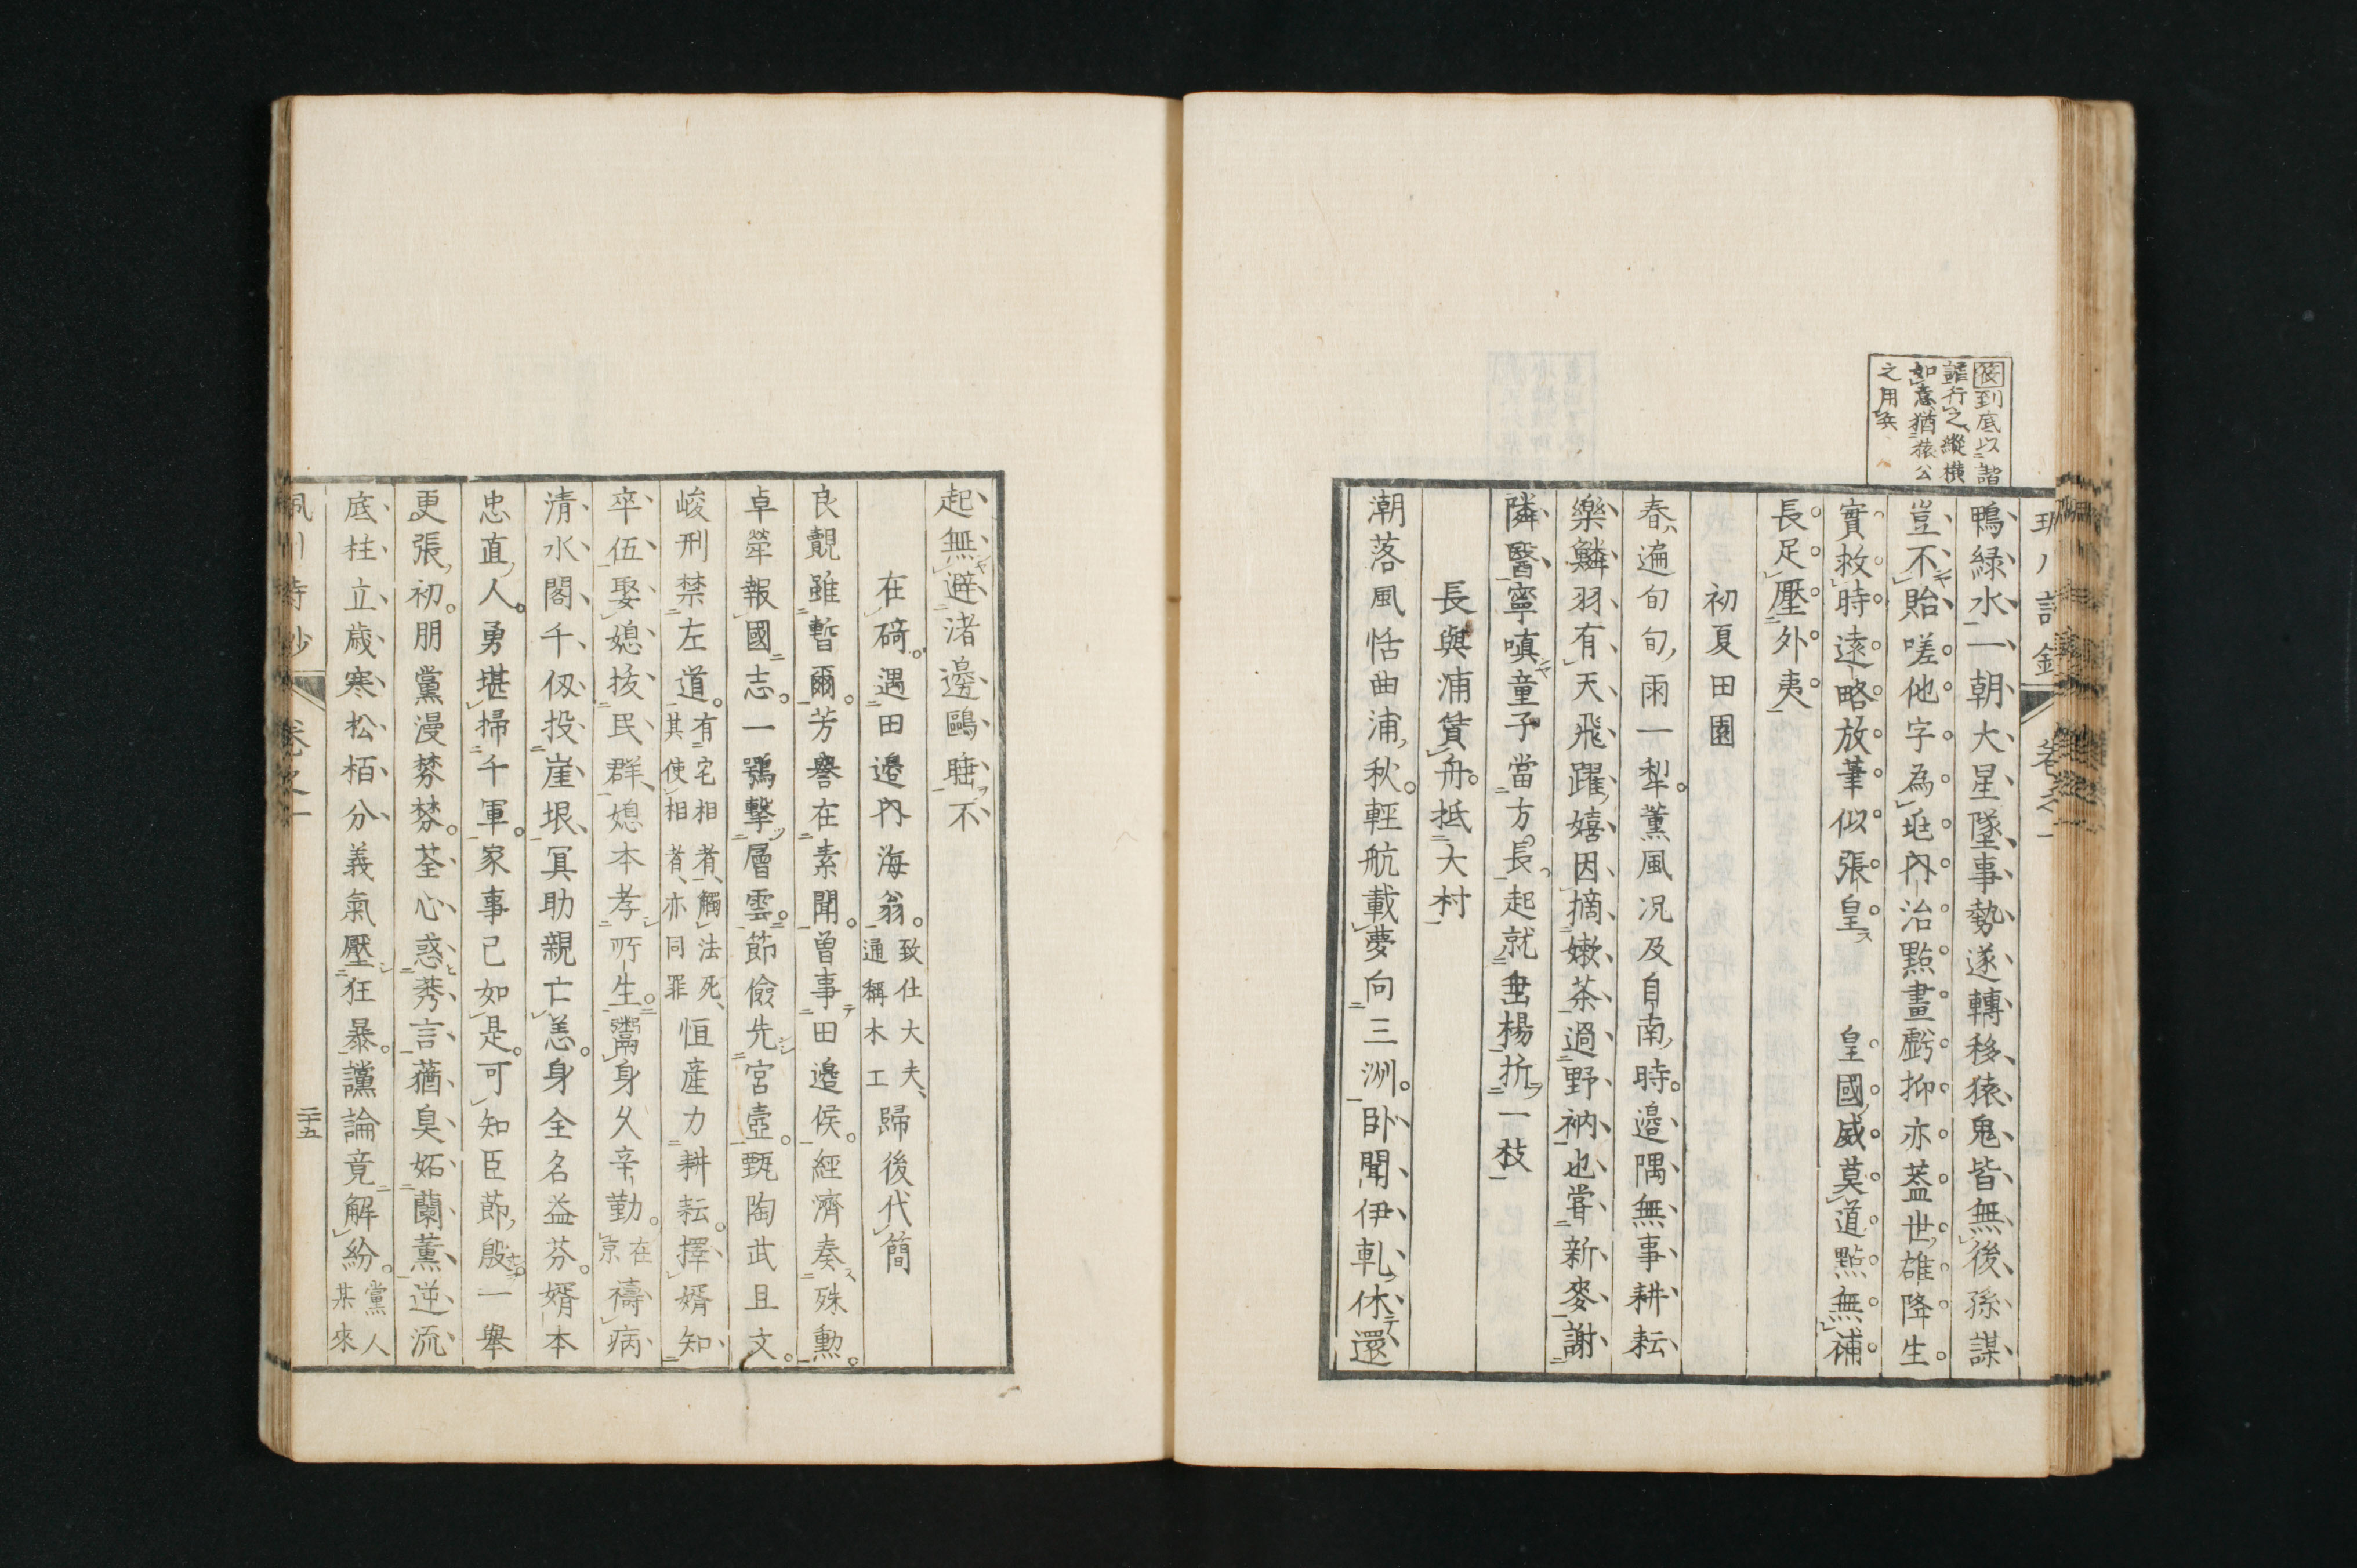 到底以諧
謔行之縱橫
如意猶猿公
之用兵
鴨緑水一朝大星墜事勢遂轉移猿鬼皆無後孫謀
豈不貽嗟他字為垂內治點畫虧抑亦蓋世雄降生
實救時遠略放筆似張皇 皇國威莫道點無補
長足壓外夷
初夏田園
春遍旬旬雨一犁薰風况及自南時邉隅無事耕耘
樂鱗羽有天飛躍嬉因摘嫩茶過野衲也嘗新麥謝
隣醫寧嗔童子當方長起就垂楊折一枝
長與浦賃舟抵大村
潮落風恬曲浦秋輕航載夢向三洲卧聞伊軋休還
起無避渚邊鷗睡不
在碕遇田邉內海翁致仕大夫通稱木工歸後代簡
良覿雖暫爾芳譽在素聞曽事田邉侯經濟奏殊勳
卓犖報國志一鶚擊層雲節儉先宮壼甄陶武且文
峻刑禁左道有宅相其使相者觸法死者亦同罪恒産力耕耘擇婿知
卒伍娶媳拔民群媳本孝所生鬻身久辛勤在京禱病
清水閣千仭投崖垠冥助親亡恙身全名益芬婿本
忠直人勇堪掃千軍家事已如是可知臣莭殷一舉
更張初朋黨漫棼棼荃心惑莠言蕕臭妬蘭薫逆流
底柱立歳寒松栢分義氣壓狂暴讜論竟解紛黨人某來
卷之一
二十五